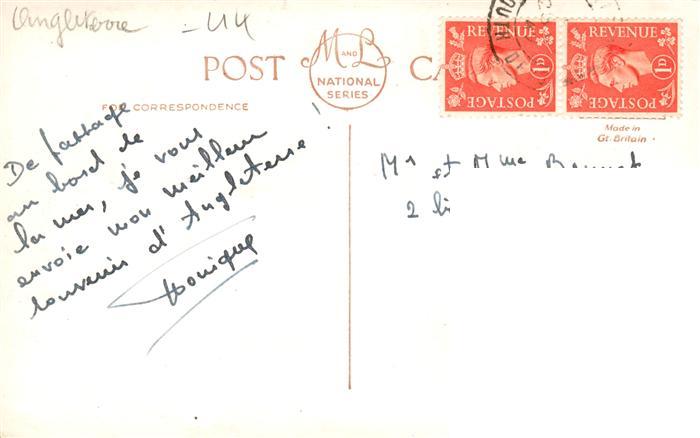 Angleterre - UK
POST CA
M AND L
NATIONAL
SERIES
FOR CORRESPONDENCE
REVENUE REVENUE
1D 1D
POSTAGE POSTAGE
Made in
Gt. Britain
De passage
au bord de
la mer, je vous
envoie mon meilleur
souvenir d'Angleterre !
Monique
Mr et Mme
2